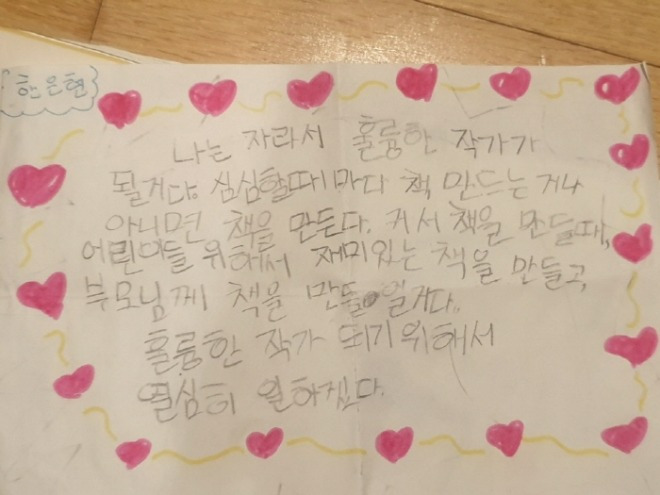 한은현
나는 자라서 훌륭한 작가가
될거다. 심심할때마다 책 만드는 거나
아니면 책을 만든다. 커서 책을 만들때,
어린이들 위해서 재미있는 책을 만들고,
부모님께 책을 만들 거다.
훌륭한 작가 되기위해서
열심히 일하겠다.